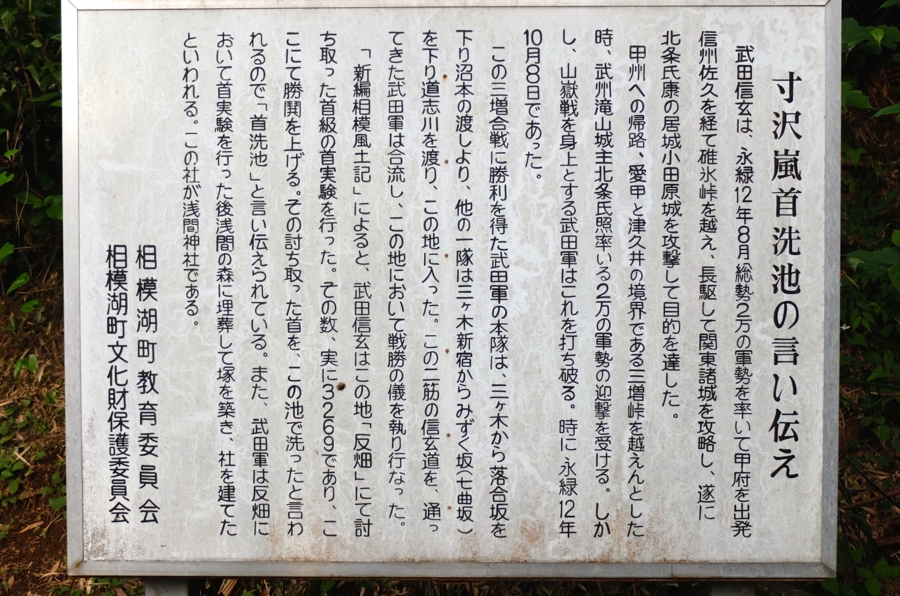 寸沢嵐首洗池の言い伝え
武田信玄は、永緑12年8月総勢2万の軍勢を率いて甲府を出発
信州佐久を経て碓氷峠を越え、長駆して関東諸城を攻略し、遂に
北条氏康の居城小田原城を攻撃して目的を達した。
甲州への帰路、愛甲と津久井の境界である三増峠を越えんとした
時、武州滝山城主北条氏照率いる2万の軍勢の迎撃を受ける。しか
し、山嶽戦を身上とする武田軍はこれを打ち破る。時に永緑12年
10月8日であった。
この三増合戦に勝利を得た武田軍の本隊は、三ヶ木から落合坂を
下り沼本の渡しより、他の一隊は三ヶ木新宿からみずく坂(七曲坂)
を下り道志川を渡り、この地に入った。この二筋の信玄道を、通っ
てきた武田軍は合流し、この地において戦勝の儀を執り行なった。
「新編相模風土記」によると、武田信玄はこの地「反畑」にて討
ち取った首級の首実験を行った。その数、実に3269であり、こ
こにて勝鬨を上げる。その討ち取った首を、この池で洗ったと言わ
れるので「首洗池」と言い伝えられている。また、武田軍は反畑に
おいて首実験を行った後浅間の森に埋葬して塚を築き、社を建てた
といわれる。この社が浅間神社である。
相模湖町教育委員会
相模湖町文化財保護委員会